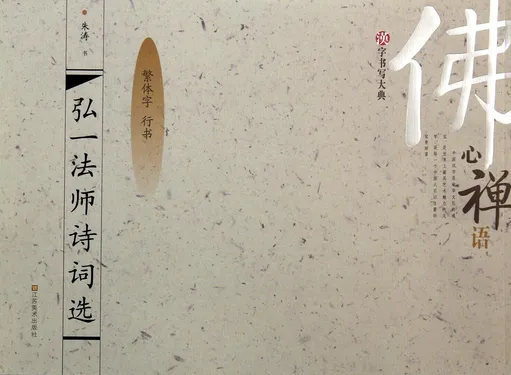 佛
心
禅
语
汉字书写大典
繁体字 行书
朱涛 书
弘一法师诗词选
江苏美术出版社